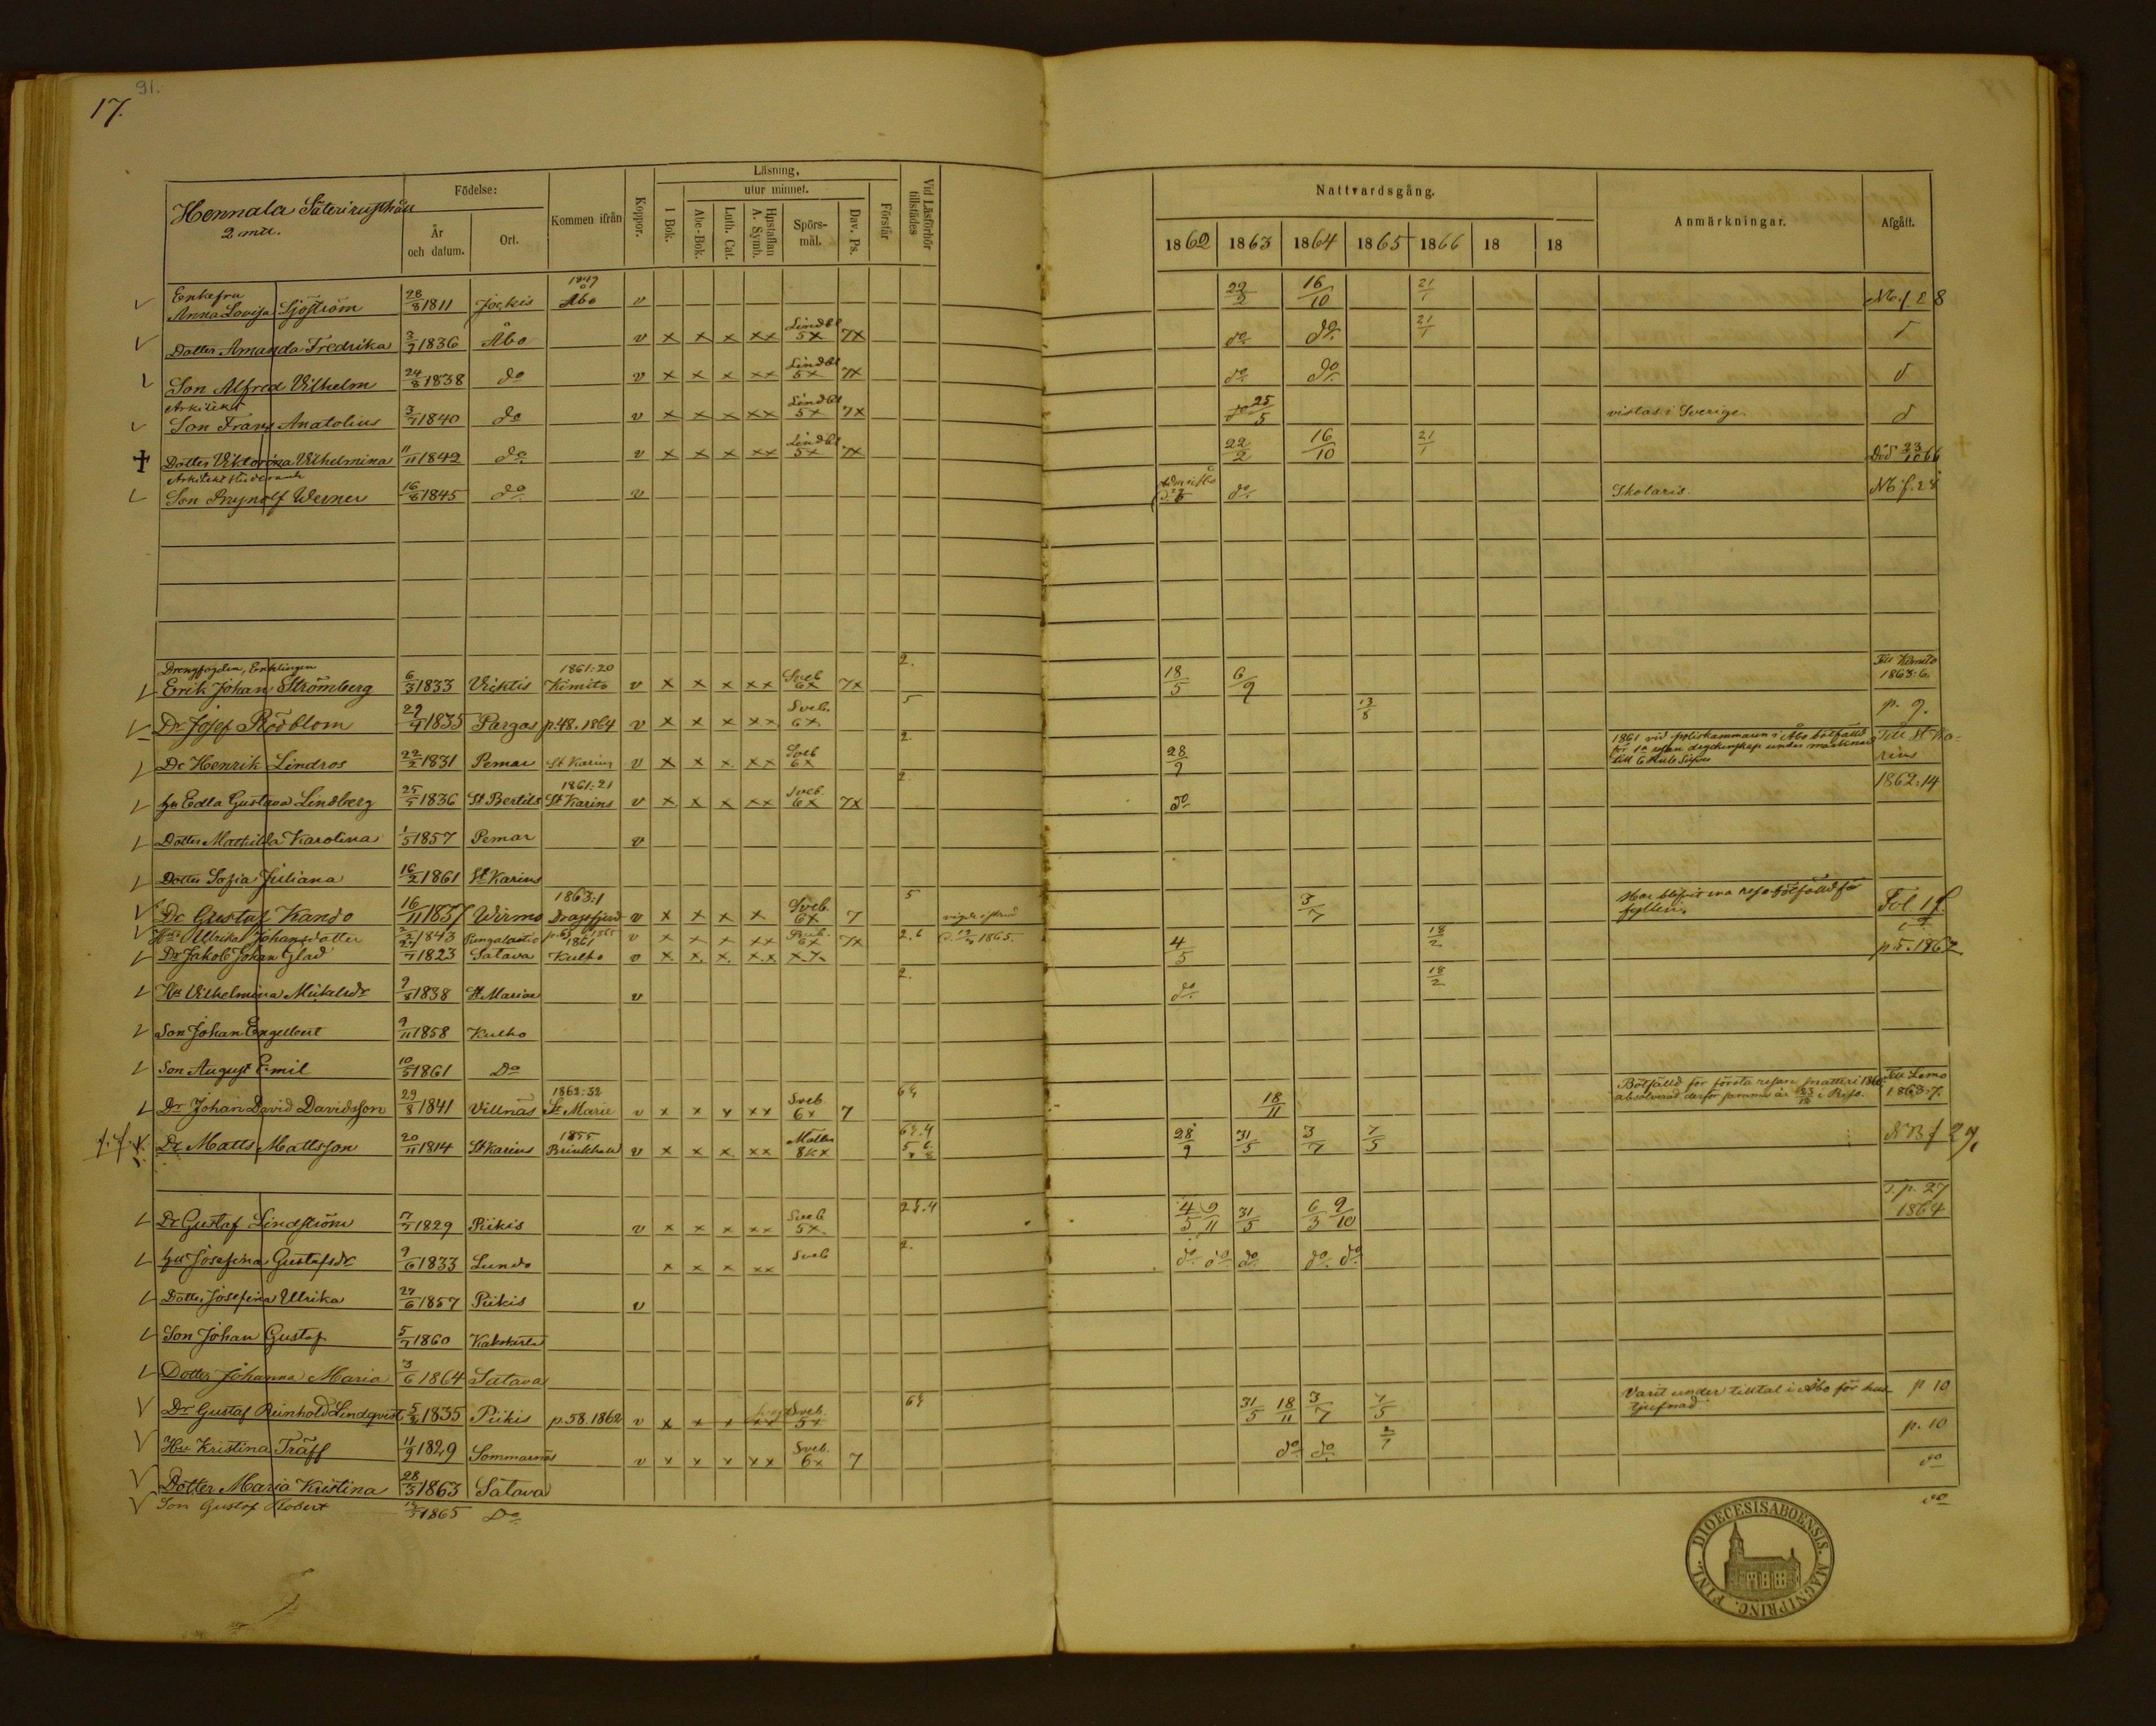 91.
17.
Hennala Säterirusthåll
2 mtl.
Födelse:
År och datum.
Ort.
Kommen ifrån
Koppor.
Läsning,
utur minnet.
I Bok.
Abc-Bok.
Luth. Cat.
Hustaflan A. Symb.
Spörs-mål.
Dav. Ps.
Förstår
Vid Läsförhör tillstädes
Nattvardsgång.
1862 1863 1864 1865 1866 18 18
Anmärkningar.
Afgått.
Enkefru 1849
Anna Lovisa Sjöström 28/8 1811 Jockis Åbo v 22/2 16/10 21/1 Nb. f. 28
Dotter Amanda Fredrika 3/7 1836 Åbo v x x x xx Lindbl 5x 7x do do 21/1
Son Alfred Vilhelm 24/8 1838 do v x x x xx Lindbl 5x 7x do do
Arkitekt
Son Frans Anatolius 3/7 1840 do v x x x xx Lindbl 5x 7x 25/5 vistas i Sverige
Dotter Viktorina Vilhelmina 11/11 1842 do v x x x xx Lindbl 5x 7x 22/2 16/10 21/1 Död 23/10 66
Arkitekt studerande
Son Brynolf Werner 16/8 1845 do v do Skolaris. Nb f. 28
Drengfogden, Enklingen 1861:20 2.
Erik Johan Strömberg 6/3 1833 Vicktis Kimito v x x x xx Sveb 6x 7x 18/5 6/9 Till Kimito 1863:6.
Dr Josef Rödblom 29/4 1835 Pargas p.48.1864 v x x x xx Sveb. 6x 5 13/8 p. 9.
Dr Henrik Lindros 22/2 1831 Pemar St Karins v x x x xx Sveb 6x 2. 28/9 1861 vid poliskammaren i Åbo bötfälld
för 1a resan dryckenskap under marknad
till 6 Rub Silfver Till St Karins
Hu Edla Gustava Lindberg 25/5 1836 St Bertils 1861:21 St Karins v x x x xx Sveb. 6x 7x 2. do 1862:14
Dotter Mathilda Karolina 1/5 1857 Pemar v
Dotter Sofia Juliana 16/2 1861 St Karins
Dr Gustaf Kando 16/11 1837 Wirmo 1863:1 Dragsfjerd v x x x x Sveb. 6x 7 5 3/7 Fol 1
Hu Ullrika Johansdotter 1843 v x x x xx 6x 7x 2.6 1865. 18/2
Dr Jakob Johan Glad 1823 Satava 1861 Kulho v x. x. x. x.x 4/5 p 5. 1862
Hu Vilhelmina Mickelsdr 9/8 1838 St Mariae v 2. do 18/2
Son Johan Engelbert 9/11 1858 Kulho
Son August Emil 10/5 1861 Do
Dr Johan David Davidsson 29/8 1841 Villnäs 1862:32 St Marie v x x x xx Sveb. 6x 7 18/11 Bötfälld för första resan snatteri 186
absolverad derför samma år 23/12 i Reso. Till Lemo 1863:7.
Dr Matts Mattsson 20/11 1814 St Karins 1855 Brinkhall v x x x xx 28/9 31/5 3/7 7/5 NB f 27,
Dr Gustaf Lindström 1829 Piikis v x x x xx Sveb 5x 4/5 9/11 31/5 6/3 9/10 p. 27 1864
Hu Josefina Gustafsdr 9/6 1833 Lundo x x x xx Sveb 2. do do do do do
Dotter Josefina Ullrika 27/6 1857 Piikis v
Son Johan Gustaf 5/7 1860 Kakskerta
Dotter Johanna Maria 3/6 1864 Satava
Dr Gustaf Reinhold Lindqvist 1835 Piikis p.58.1862 v x x x xx Sveb. 5x 31/5 18/11 3/7 7/5 Varit under tilltal i Åbo för
tjufnad. p 10
Hu Kristina Träff 11/9 1829 Sommarnäs v x x x xx Sveb. 6x 7 do do p. 10
Dotter Maria Kristina 28/5 1863 Satava do
Son Gustaf Robert 1865 Do do
DIOECESIS ABOENSIS. MAGNI PRINC. FINL.